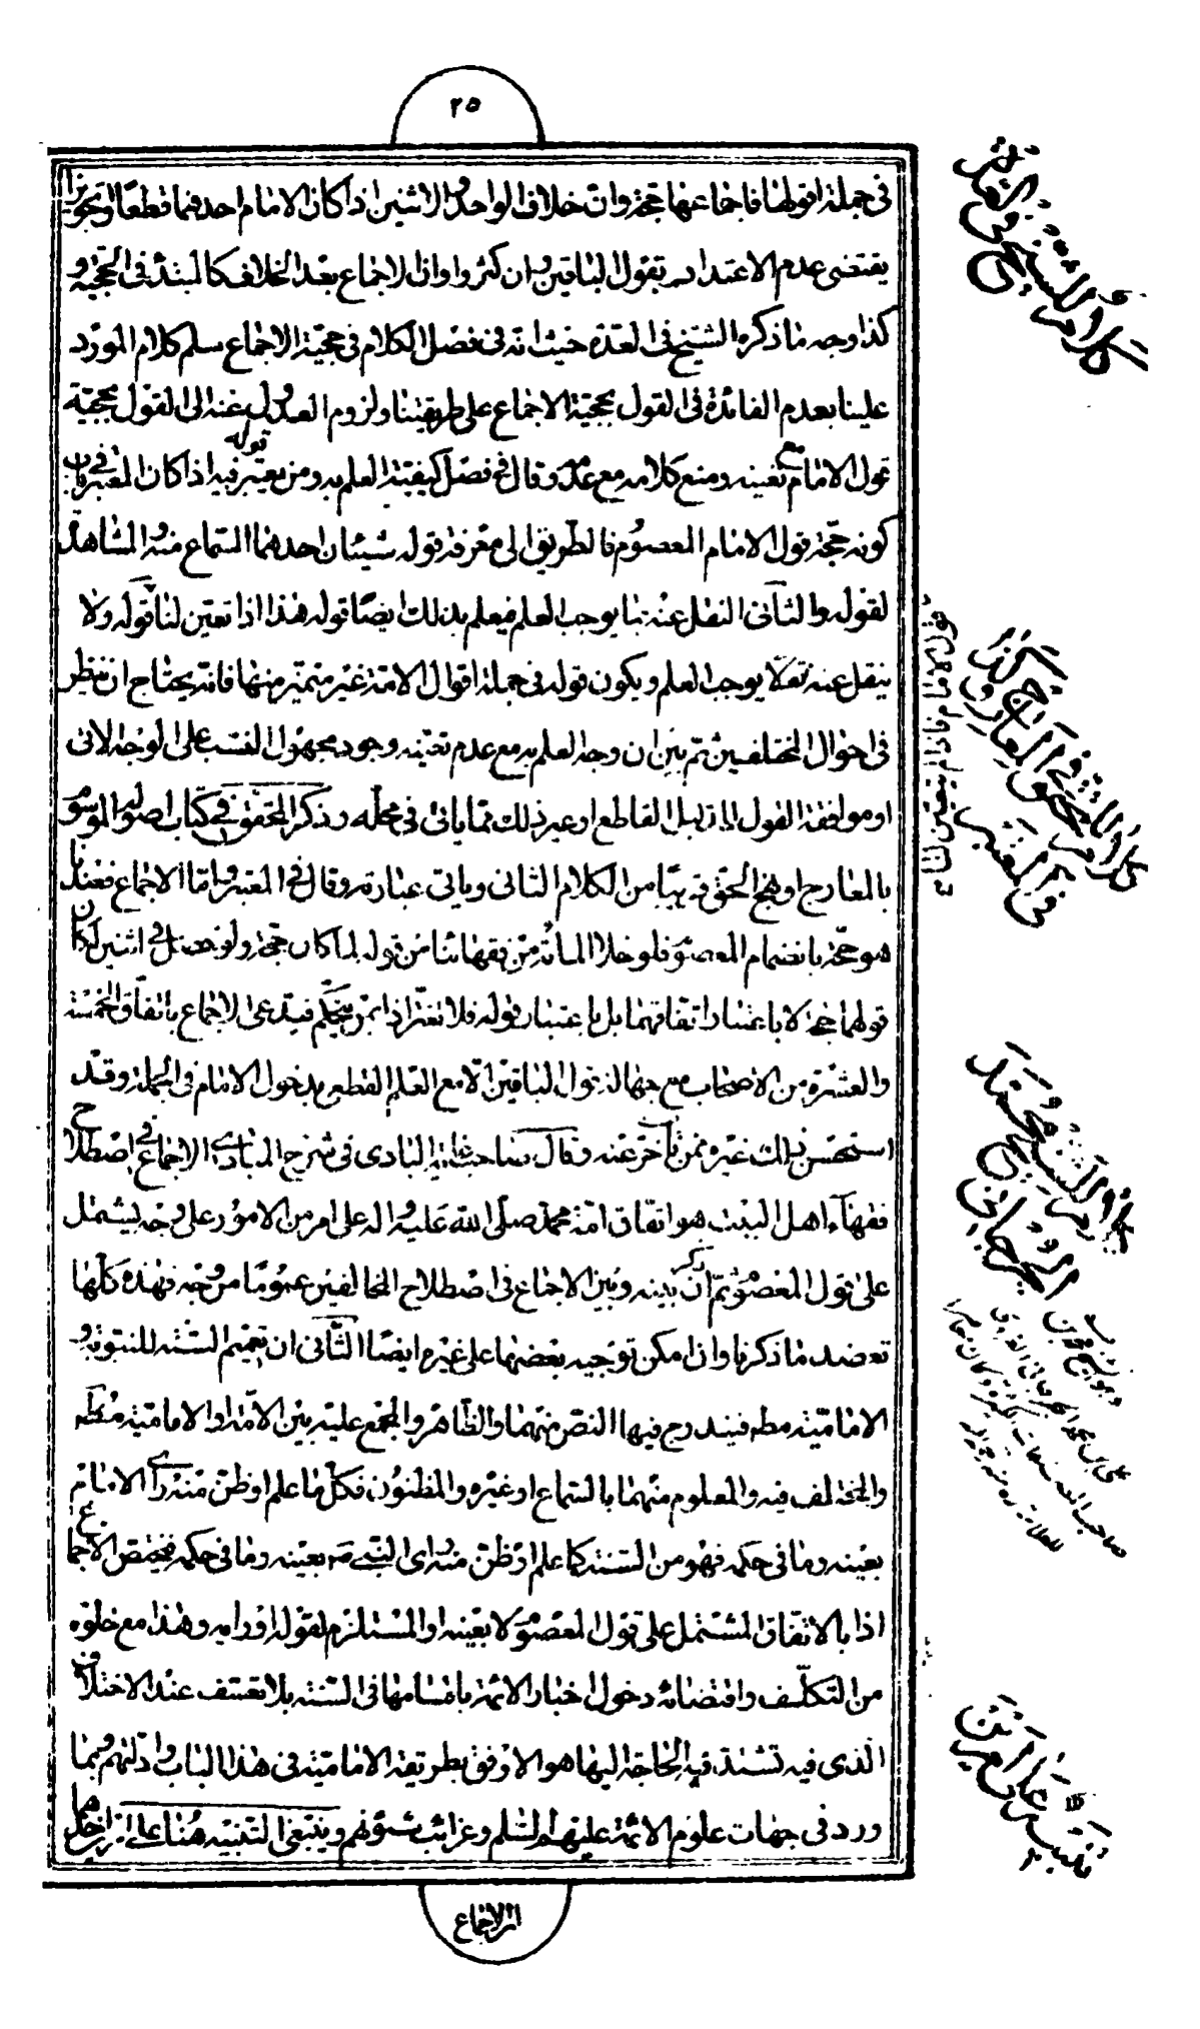 ٢٥
فى جملة اقوالها فاجماعها حجة وان خلاف الواحد والاثنين اذا كان الامام احدهما قطعا او تجويزا
يقتضى عدم الاعتداد بقول الباقين وان كثروا وان الاجماع بعد الخلاف كالمبتدأ فى الحجية و
كذا وجه ما ذكره الشيخ فى العدة حيث انه فى فصل الكلام فى حجية الاجماع سلم كلام المورد
علينا بعدم الفائدة فى القول بحجية الاجماع على طريقتنا ولزوم العدول عنه الى القول بحجية
قول الامام بعينه ومنع كلامه مع عدمه وقال فى فصل كيفية العلم به ومن يعتبر قوله فيه اذا كان المعتبر فى باب
كونه حجة قول الامام المعصوم فالطريق الى معرفة قوله شيئان احدهما السماع منه والمشاهدة
لقوله والثانى النقل عنه بما يوجب العلم فيعلم بذلك ايضا قوله هذا اذا تعين لنا قوله ولا
ينقل عنه نقلا يوجب العلم ويكون قوله فى جملة اقوال الامة غير متميز منها فانه يحتاج ان ننظر
فى احوال المختلفين ثم بين ان وجه العلم به مع عدم تعينه وجود مجهول النسب على الوجه الاتى
او موافقة القول الدليل القاطع او غير ذلك مما ياتى فى محله وذكر المحقق فى كتاب اصوله الموسوم
بالمعارج او نهج الحق قريبا من الكلام الثانى وياتى عبارته وقال فى المعتبر واما الاجماع فعندنا
هو حجة بانضمام المعصوم فلو خلا المائة من فقهائنا من قوله لما كان حجة ولو حصل فى اثنين لكان
قولهما حجة لا باعتبار اتفاقهما بل باعتبار قوله فلا تغتر اذا بمن يتحكم فيدعى الاجماع باتفاق الخمسة
والعشرة من الاصحاب مع جهالة قول الباقين الا مع العلم القطعى بدخول الامام فى الجملة وقد
استحسن ذلك غيره ممن تاخر عنه وقال صاحب غاية البادى فى شرح المبادى الاجماع فى اصطلاح
فقهاء اهل البيت هو اتفاق امة محمد صلى الله عليه واله على امر من الامور على وجه يشتمل
على قول المعصوم ثم ذكر ان بينه وبين الاجماع فى اصطلاح المخالفين عموما من وجه فهذه كلها
تعضد ما ذكرنا وان امكن توجيه بعضها على غيره ايضا الثانى ان تعميم السنة للنبوية و
الامامية مطه فيندرج فيها النص منهما والظاهر والمجمع عليه بين الامة او الامامية مطه
والمختلف فيه والمعلوم منهما بالسماع او غيره والمظنون فكل ما علم او ظن منه راى الامام
بعينه وما فى حكمه فهو من السنة كما علم او ظن منه راى النبى ص بعينه وما فى حكمه فيختص الاجماع
اذا بالاتفاق المشتمل على قول المعصوم لا بعينه او المستلزم لقوله او رايه وهذا مع خلوه
من التكلف واقتضائه دخول اخبار الائمة باقسامها فى السنة بلا تعسف عند الاختلاف
الذى فيه تشتد فيه الحاجة اليها هو الاوفق بطريقة الامامية فى هذا الباب وادلتهم وبما
ورد فى جهات علوم الائمة عليهم السلم وغرائب شؤنهم وينبغى التنبيه هنا على امرين احدهما
ان الاجماع
كلام الشيخ فى العدة
كلام المحقق فى المعارج وكذا
فى المعتبر
كلام الشيخ محمد
الجرجانى
تنبيه على امرين